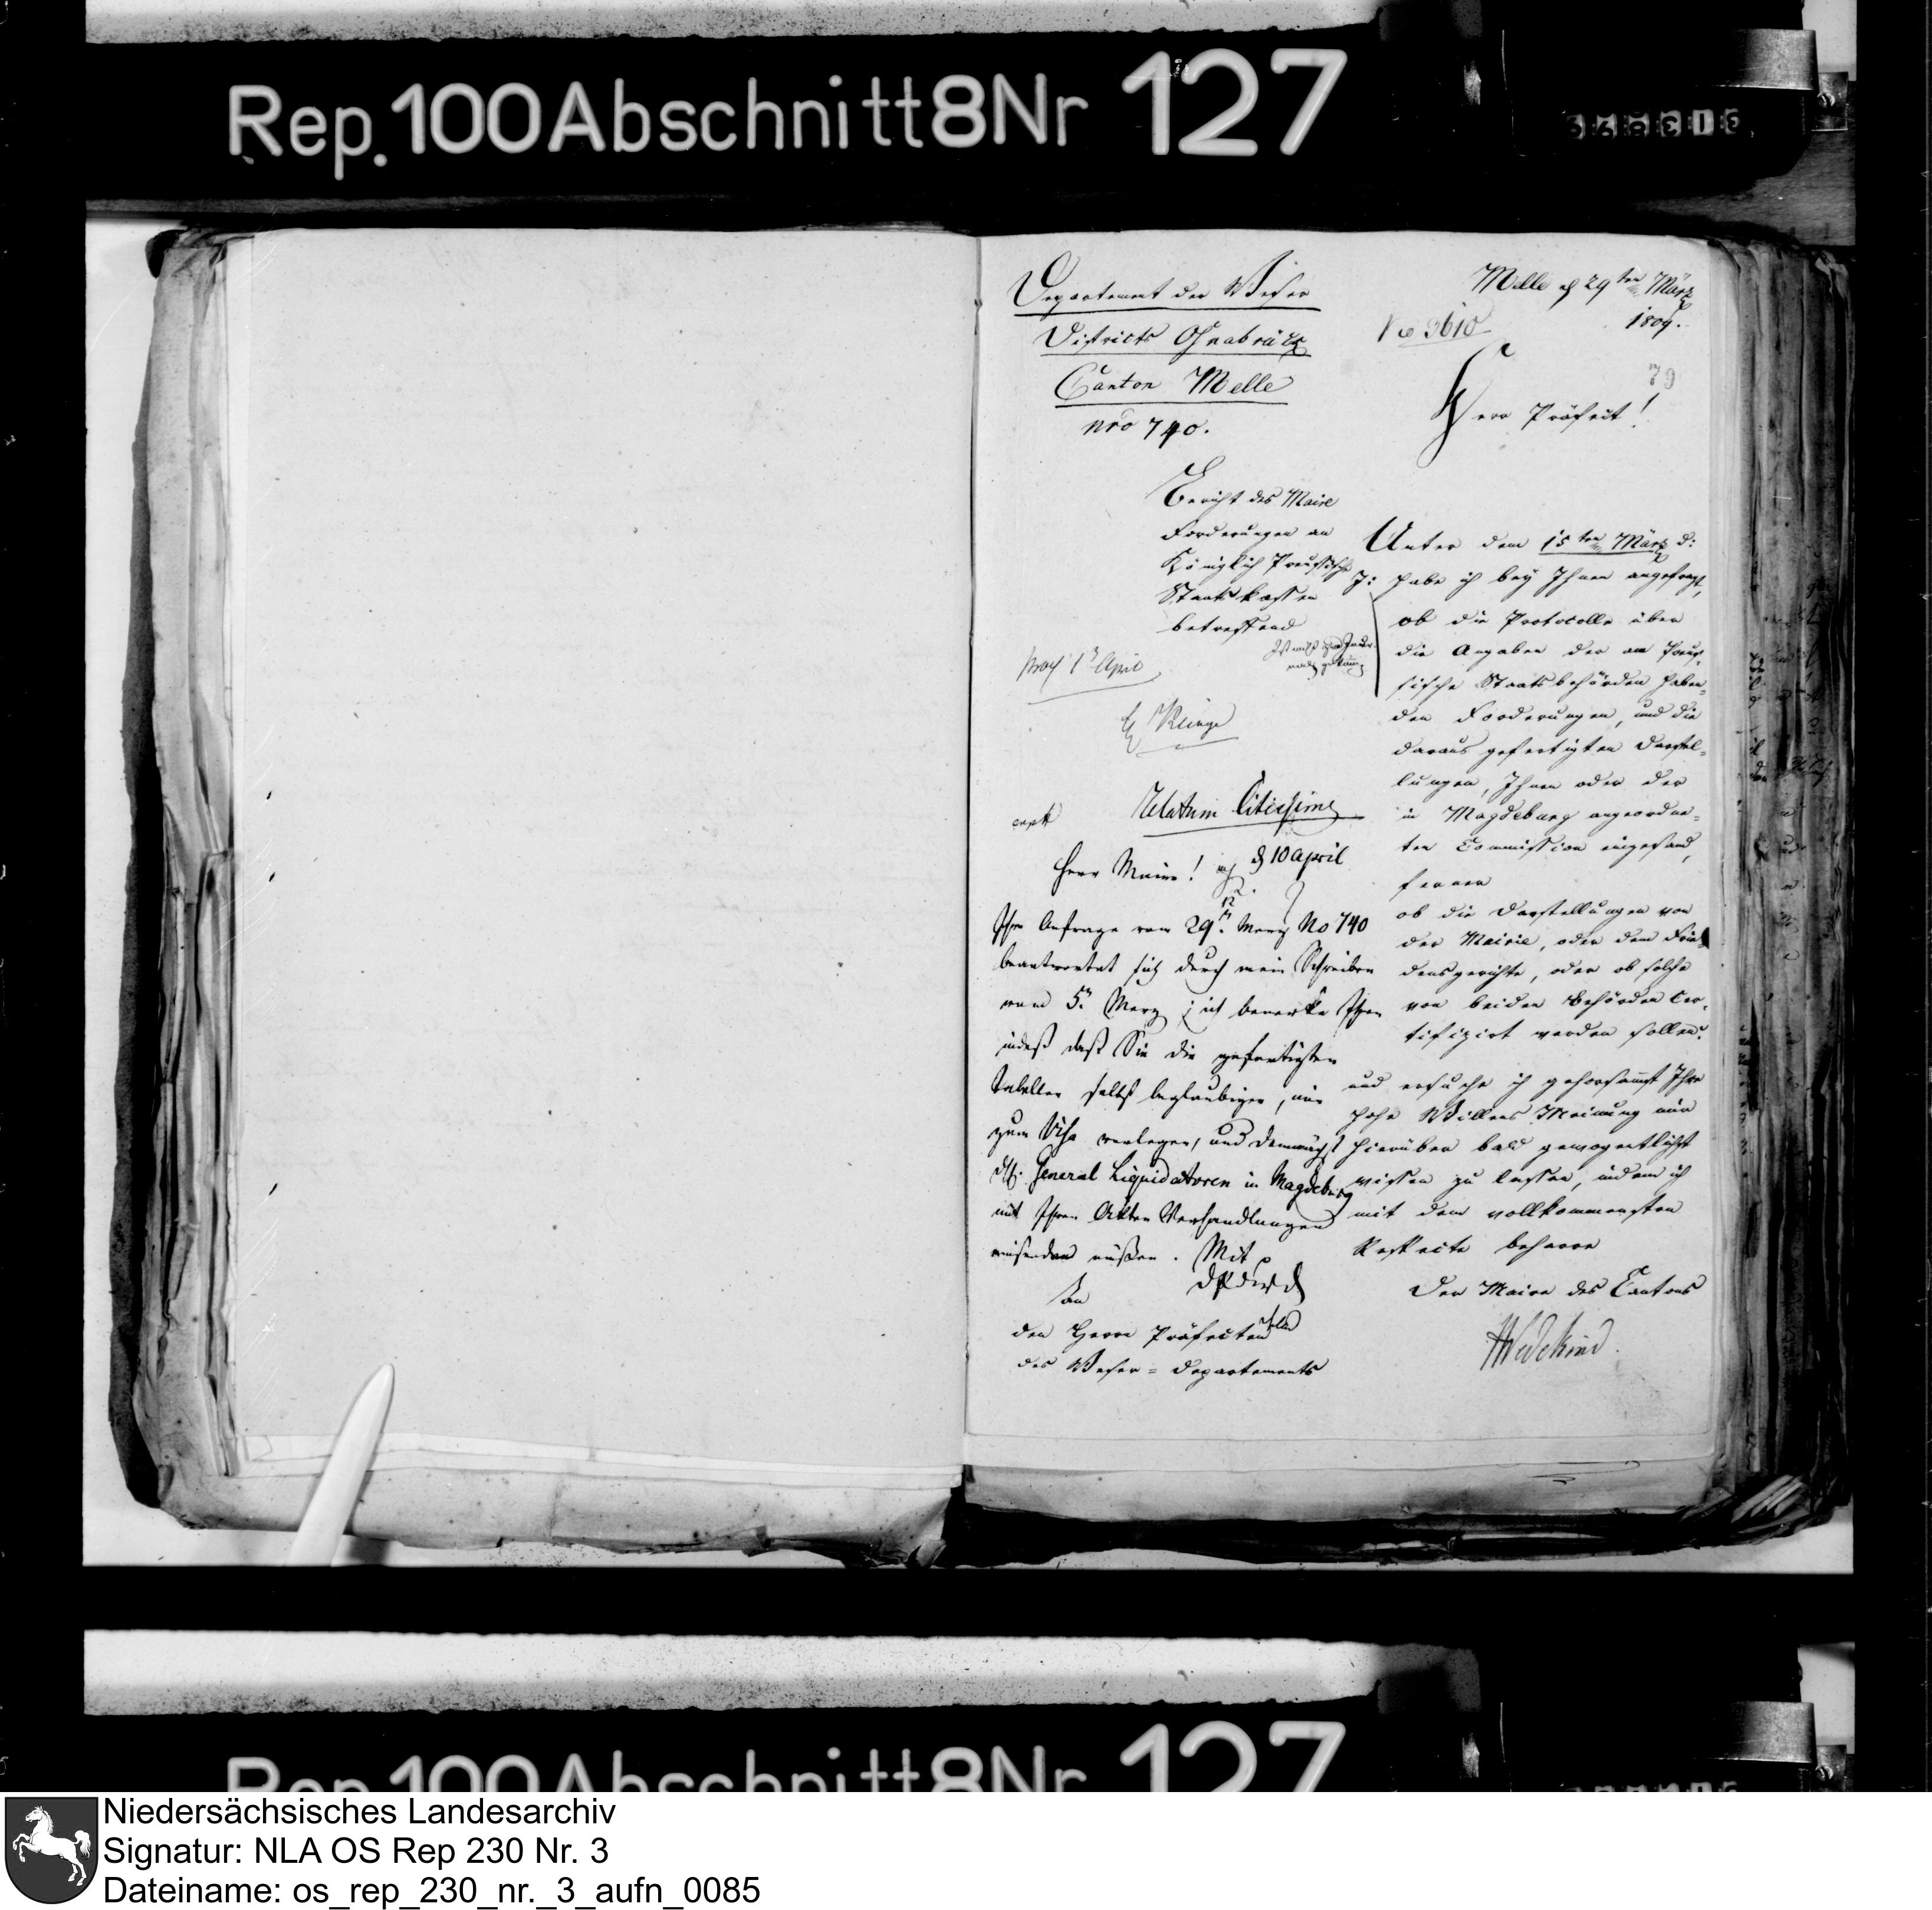 Rep. 100 Abschnitt 8 Nr 127
Departement der Weser
Districts Osnabrück
Canton Melle
nro 740.
Melle d 29ten März
1809.
No 3610
79
Herr Präfect!
Bericht des Maire
Forderungen an
Königlich Preussische
Staatskassen
betreffend
Unter dem 15ten März d:
J: habe ich bey Ihnen angefragt,
ob die Protocolle über
die Angaben der an Preus-
sische Staatsbehörden haben-
den Forderungen, und die
daraus gefertigten Darstel-
lungen, Ihnen oder der
in Magdeburg angeordne-
ten Commission eingesand,
ferner
ob die Darstellungen von
der Mairie, oder dem Frie-
densgerichte, oder ob solche
von beiden Behörden cer-
tifizirt werden sollen?
und ersuche ich gehorsamst Ihre
hohe Willens Meinung mir
hierüber bald gewogentlichst
wissen zu lassen, indem ich
mit dem vollkommensten
Respecte beharre
Der Maire des Cantons
HWedekind.
1n April
Relatum Citissime
Herr Maire! d 10 April
Ihre Anfrage vom 29n Merz No 740
beantwortet sich durch mein Schreiben
vom 5n Merz; ich bemerke Ihnen
indeß daß Sie die gefertigten
Tabellen selbst beglaubigen, mir
zum Visa vorlegen, und demnächst
General Liquidatoren in Magdeburg
mit Ihren Akten Verhandlungen
einsenden müßen. Mit
An
den Herrn Präfecten
des Weser-Departements
Rep. 100 Abschnitt 8 Nr 127
Niedersächsisches Landesarchiv
Signatur: NLA OS Rep 230 Nr. 3
Dateiname: os_rep_230_nr._3_aufn_0085